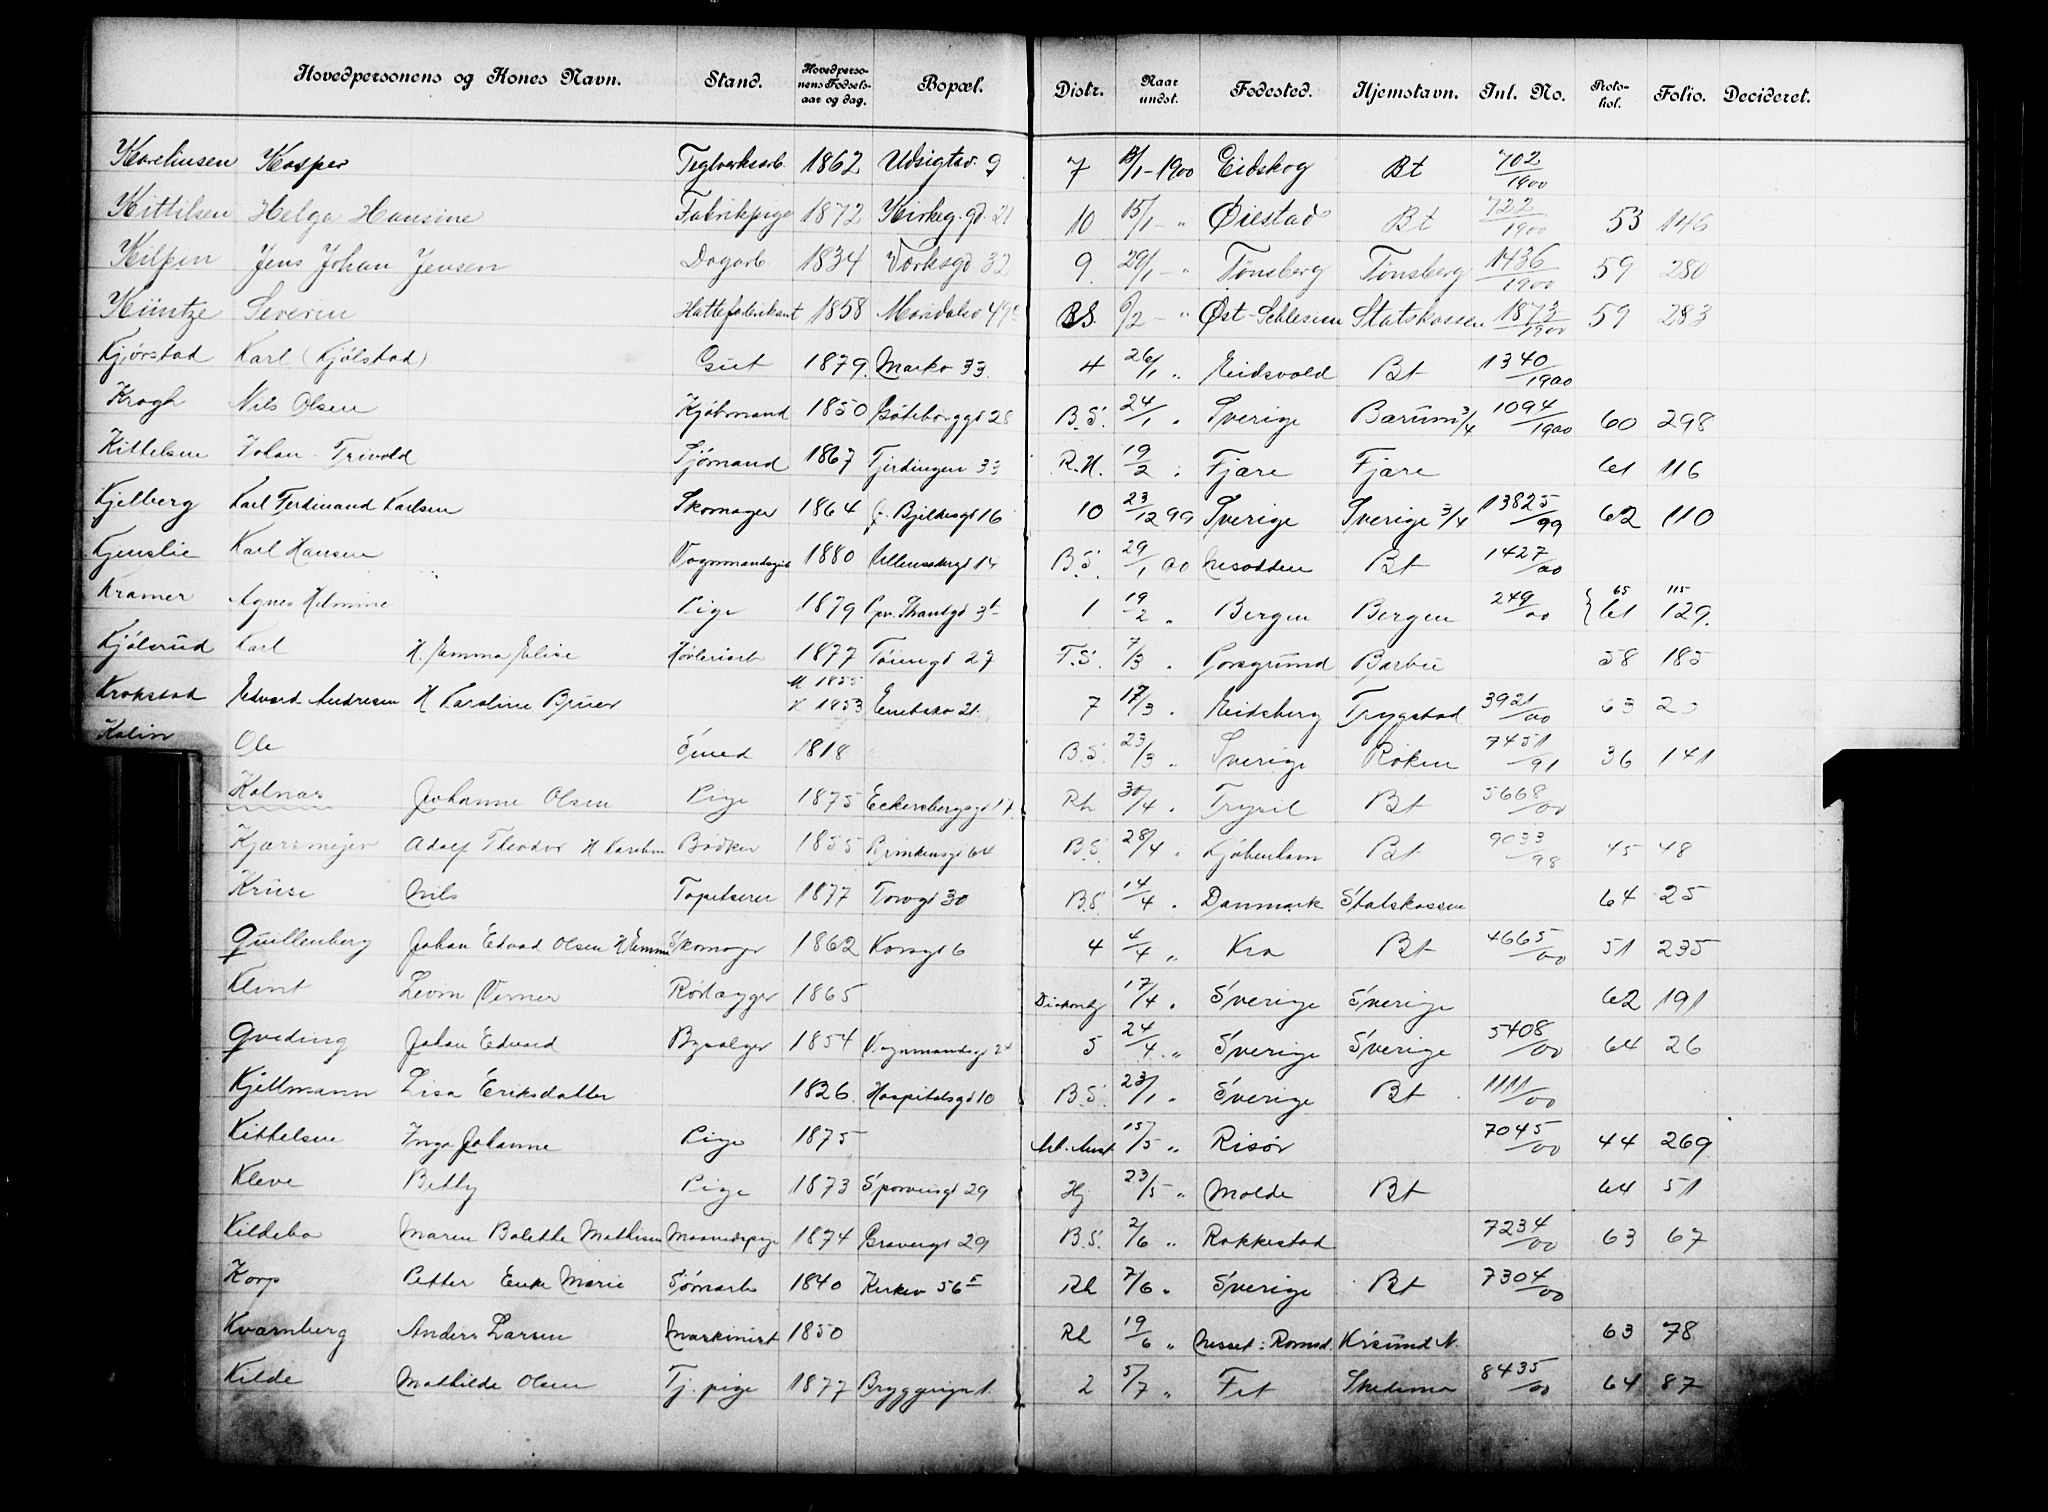 Hovedpersonens og Kones Navn. Stand. Hovedpersonens Fødselsaar og dag. Bopæl. Distr. Naar undst. Fødested. Hjemstavn. Inl. No. Protokol. Folio. Decideret.
Karelinsen Kasper Teglverksarb. 1862 Udsigtsv. 9 7 13/1-1900 Eidskog Bt 702/1900
Kittilsen Helga Hansine Fabrikpige 1872 Kirkeg.gd. 21 10 15/1 - " Øiestad Bt 722/1900 53 146
Kilpin Jens Johan Jensen Dagarb 1834 Værksgd 32 9. 29/1 - " Tønsberg Tønsberg 1436/1900 59 280
Küntze Severin Hattefabrikant 1858 Maridalsv 49c B.S. 6/2 - " Øst-Schlesien Statskassen 1873/1900 59 283
Kjørstad Karl (Kjølstad) Gut 1879. Markv 33. 4 26/1 " Eidsvold Bt 1340/1900
Krogh Nils Olsen Kjøbmand 1850 Gøteborggd 28 B.S. 24/1 " Sverige Bærum 3/4 1094/1900 60 298
Kittelsen Johan Trivold Sjømand 1867 Fjerdingen 33 R.H. 19/2 " Fjære Fjære 61 116
Kjelberg Karl Ferdinand Karlsen Skomager 1864 Bjelkesgd 16 10 23/12 99 Sverige Sverige 3/4 13825/99 62 110
Kjenslie Karl Hansen Vognmandsgut 1880 Ullensakergd 14 B.S. 29/1 00 Nesodden Bt 1427/00
Kramer Agnes Helmine Pige 1879 3b 1 19/2 " Bergen Bergen 249/00 { 65 115
61 129.
Kjølsrud Karl H. Emma Elise Høvleriarb 1877 Tøiengd 27 F.S. 7/3 " Porsgrund Barbu 58 185
Krokstad Edvard Andresen H Karoline M 1855
H 1853 Enebakv 21. 7 17/3 " Eidsberg Trygstad 3921/00 63 20
Kalin Ole Smed 1818 B.S. 23/3 " Sverige Røken 7451/91 36 141
Kolnas Johanne Olsen Pige 1875 Eckersbergsgd 17. Rh 30/4 " Trysil Bt 5668/00
Kjærsmejer Adolf Theodor H Karoline Bødker 1855 Brinkensgd 64 B.S. 28/4 " Kjøbenhavn Bt 9033/98 45 48
Kruse Nils Tapetserer 1877 Torvgd 30 B.S. 14/4 " Danmark Statskassen 64 25
Quillenberg Johan Edvad Olsen H Emma Skomager 1862 Korsgd 6 4 4/4 " Kra Bt 4665/00 51 235
Klint Levin Verner Rørlægger 1865 Diakonhj 17/4 " Sverige Sverige 62 191
Qveding Johan Edvard Bysælger 1854 Vognmandsgd 24 5 24/4 " Sverige Sverige 5408/00 64 26
Kjellmann Lisa Eriksdatter 1826. Hospitalsgd 10 B.S. 23/1 " Sverige Bt 1111/00
Kittelsen Inga Johanne Pige 1875 Arb. Anst 15/5 " Risør 7045/00 44 269
Kleve Betty Pige 1873 Sporveisgd 29 Hj 23/5 " Molde Bt 64 51
Kildebo Maren Bolette Mathisen Maanedspige 1874 Gravergd 29 B.S. 2/6 " Rakkestad 7234/00 63 67
Korp Petter Enke Marie Sømarb 1840 Kirkev 56 E Rh 7/6 " Sverige Bt 7304/00
Kvarnberg Anders Larsen Maskinist 1850 Rh 19/6 " Nesset: Romsd. Krsund N. 63 78
Kilde Mathilde Olsen Tj. pige 1877 Bryggerigd 1. 2 5/7 " Fet Skedsmo 8435/00 64 87